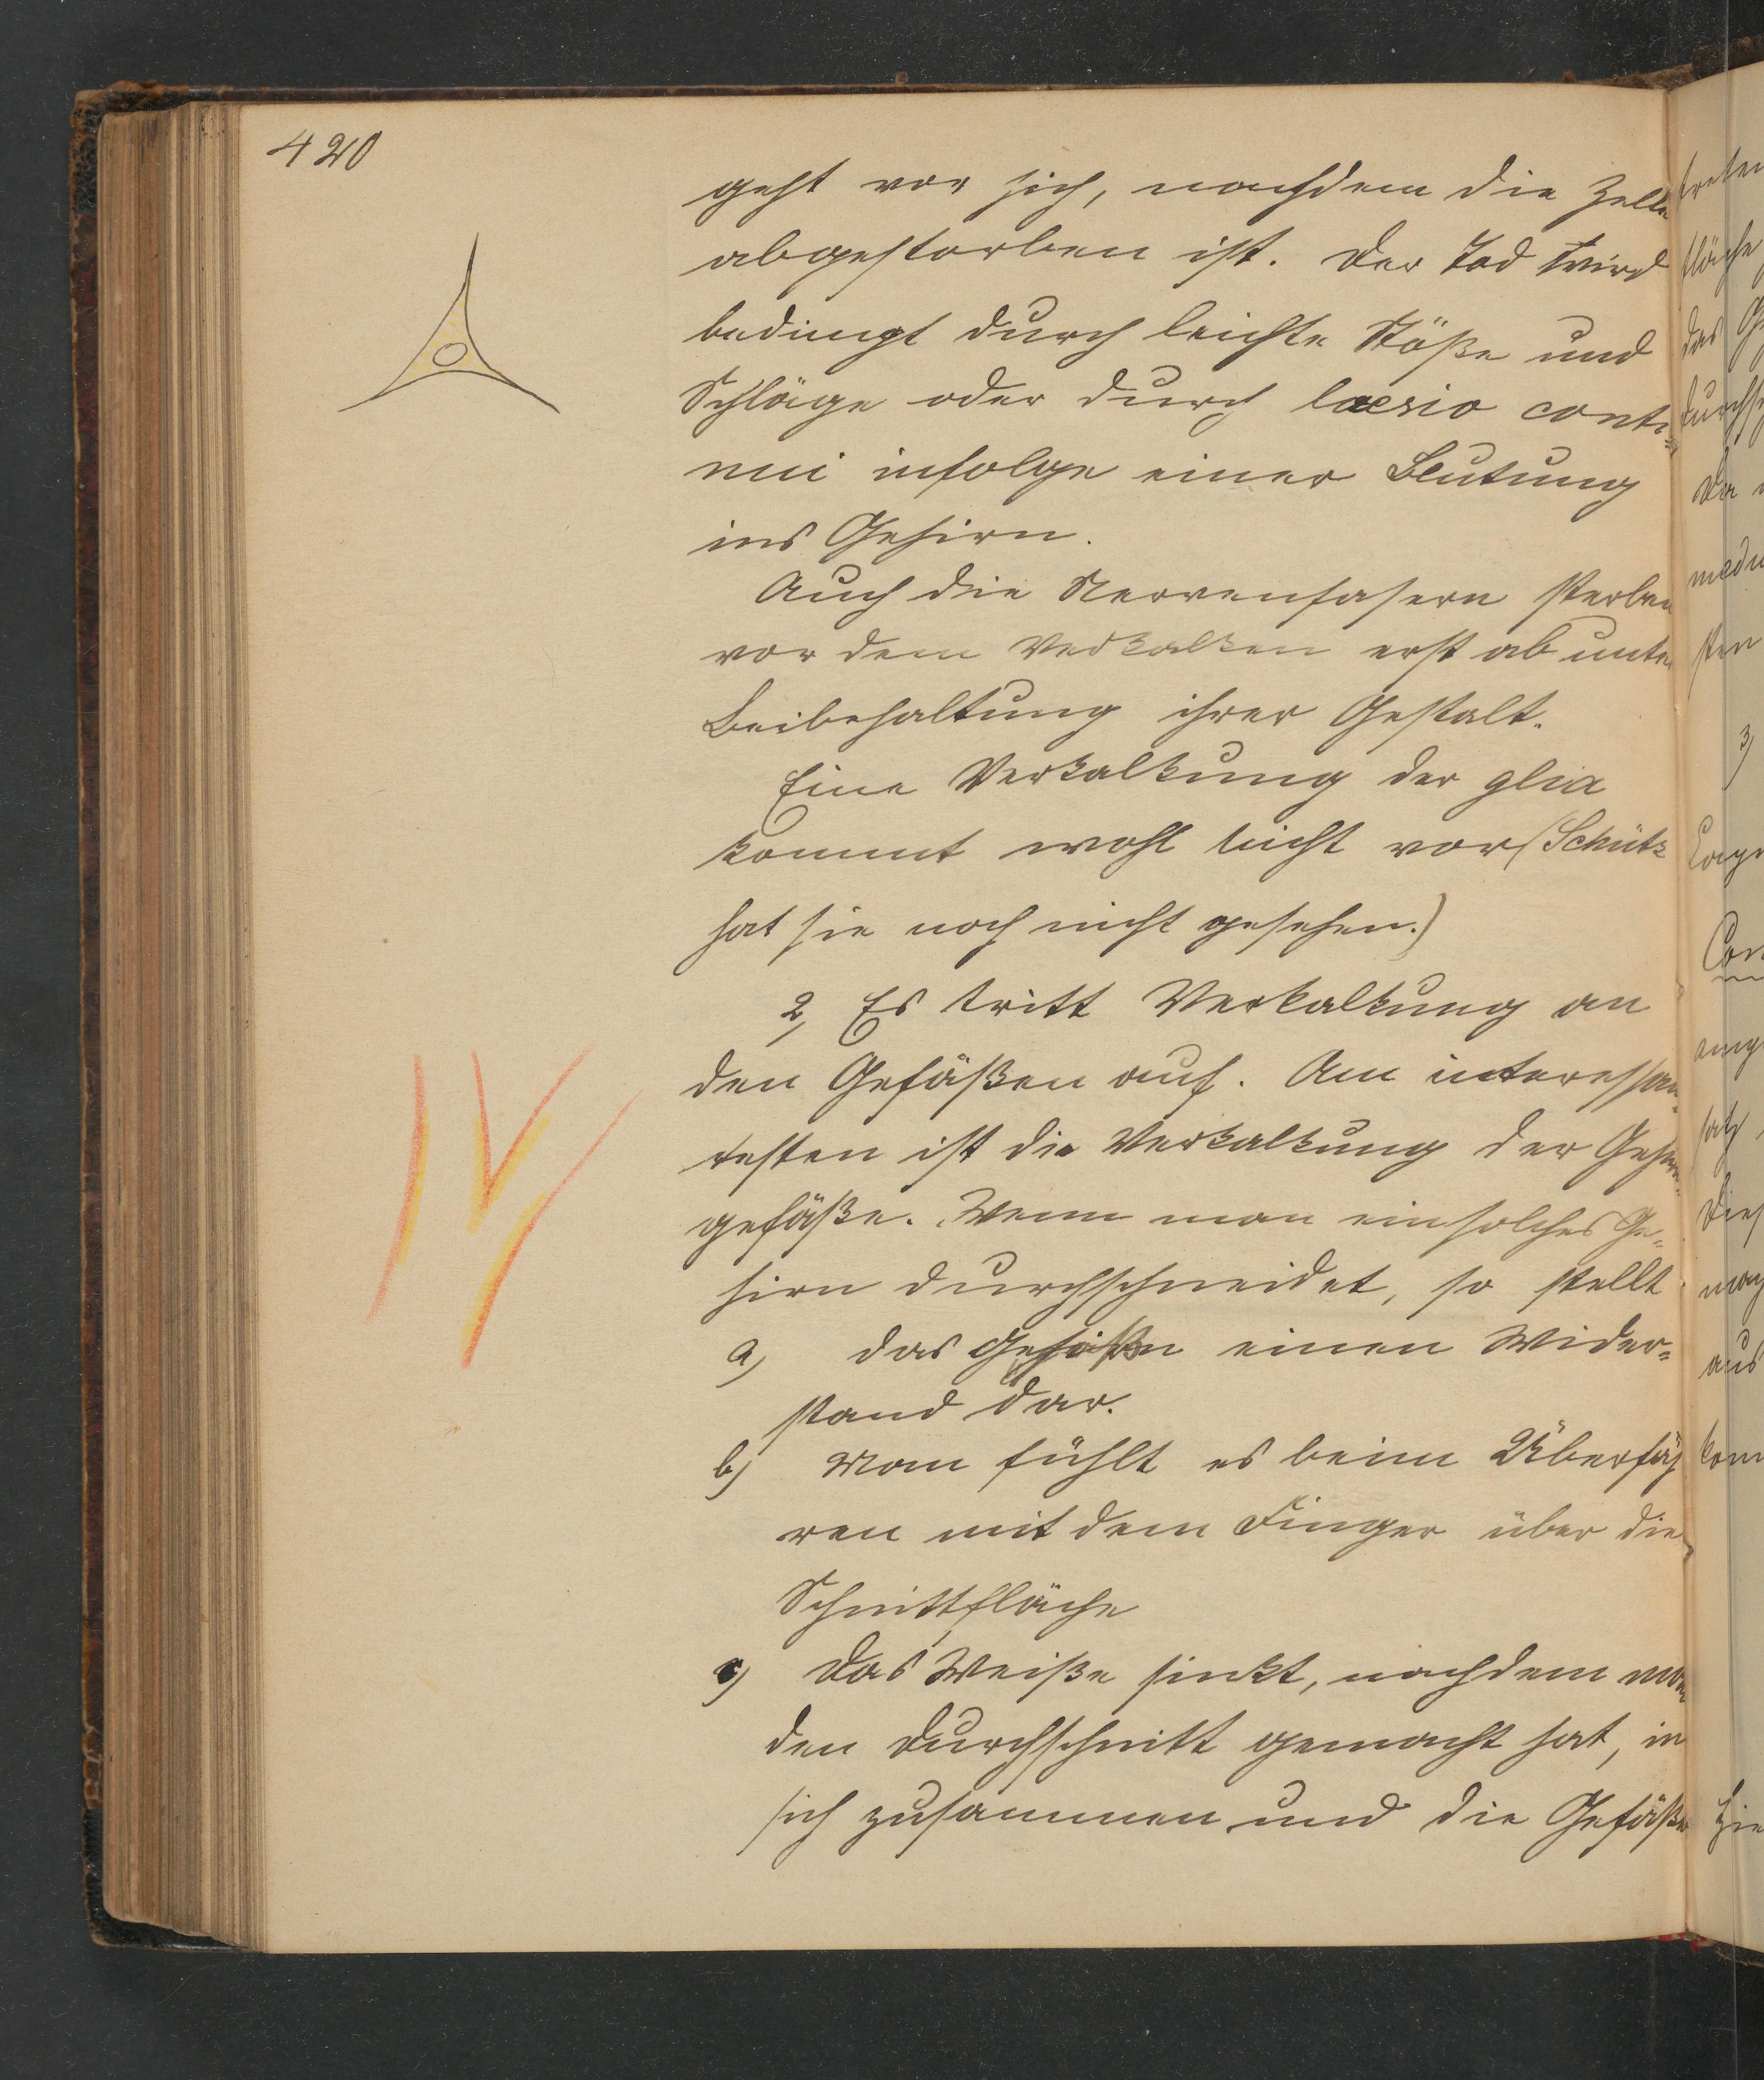 420
geht vor sich, nachdem die Zelle
abgestorben ist. Der Tod wird
bedingt durch leichte Stöße und
Schläge oder durch laesio conti-
nui infolge einer Blutung
ins Gehirn.
Auch die Nervenfasern sterben
vor dem Verkalken erst ab unter
Beibehaltung ihrer Gestalt.
Eine Verkalkung der glia
kommt wohl nicht vor (Schütz
hat sie noch nicht gesehen.)
2, Es tritt Verkalkung an
den Gefäßen auf. Am interessan-
testen ist die Verkalkung der Gehirn-
gefäße. Wenn man ein solches Ge-
hirn durchschneidet, so stellt
a) das Gefäß einen Wider-
stand dar.
b) Man fühlt es beim Überfah
ren mit dem Finger über die
Schnittfläche
c) Das Weiße sinkt, nachdem man
den Durchschnitt gemacht hat, in
sich zusammen und die Gefäße